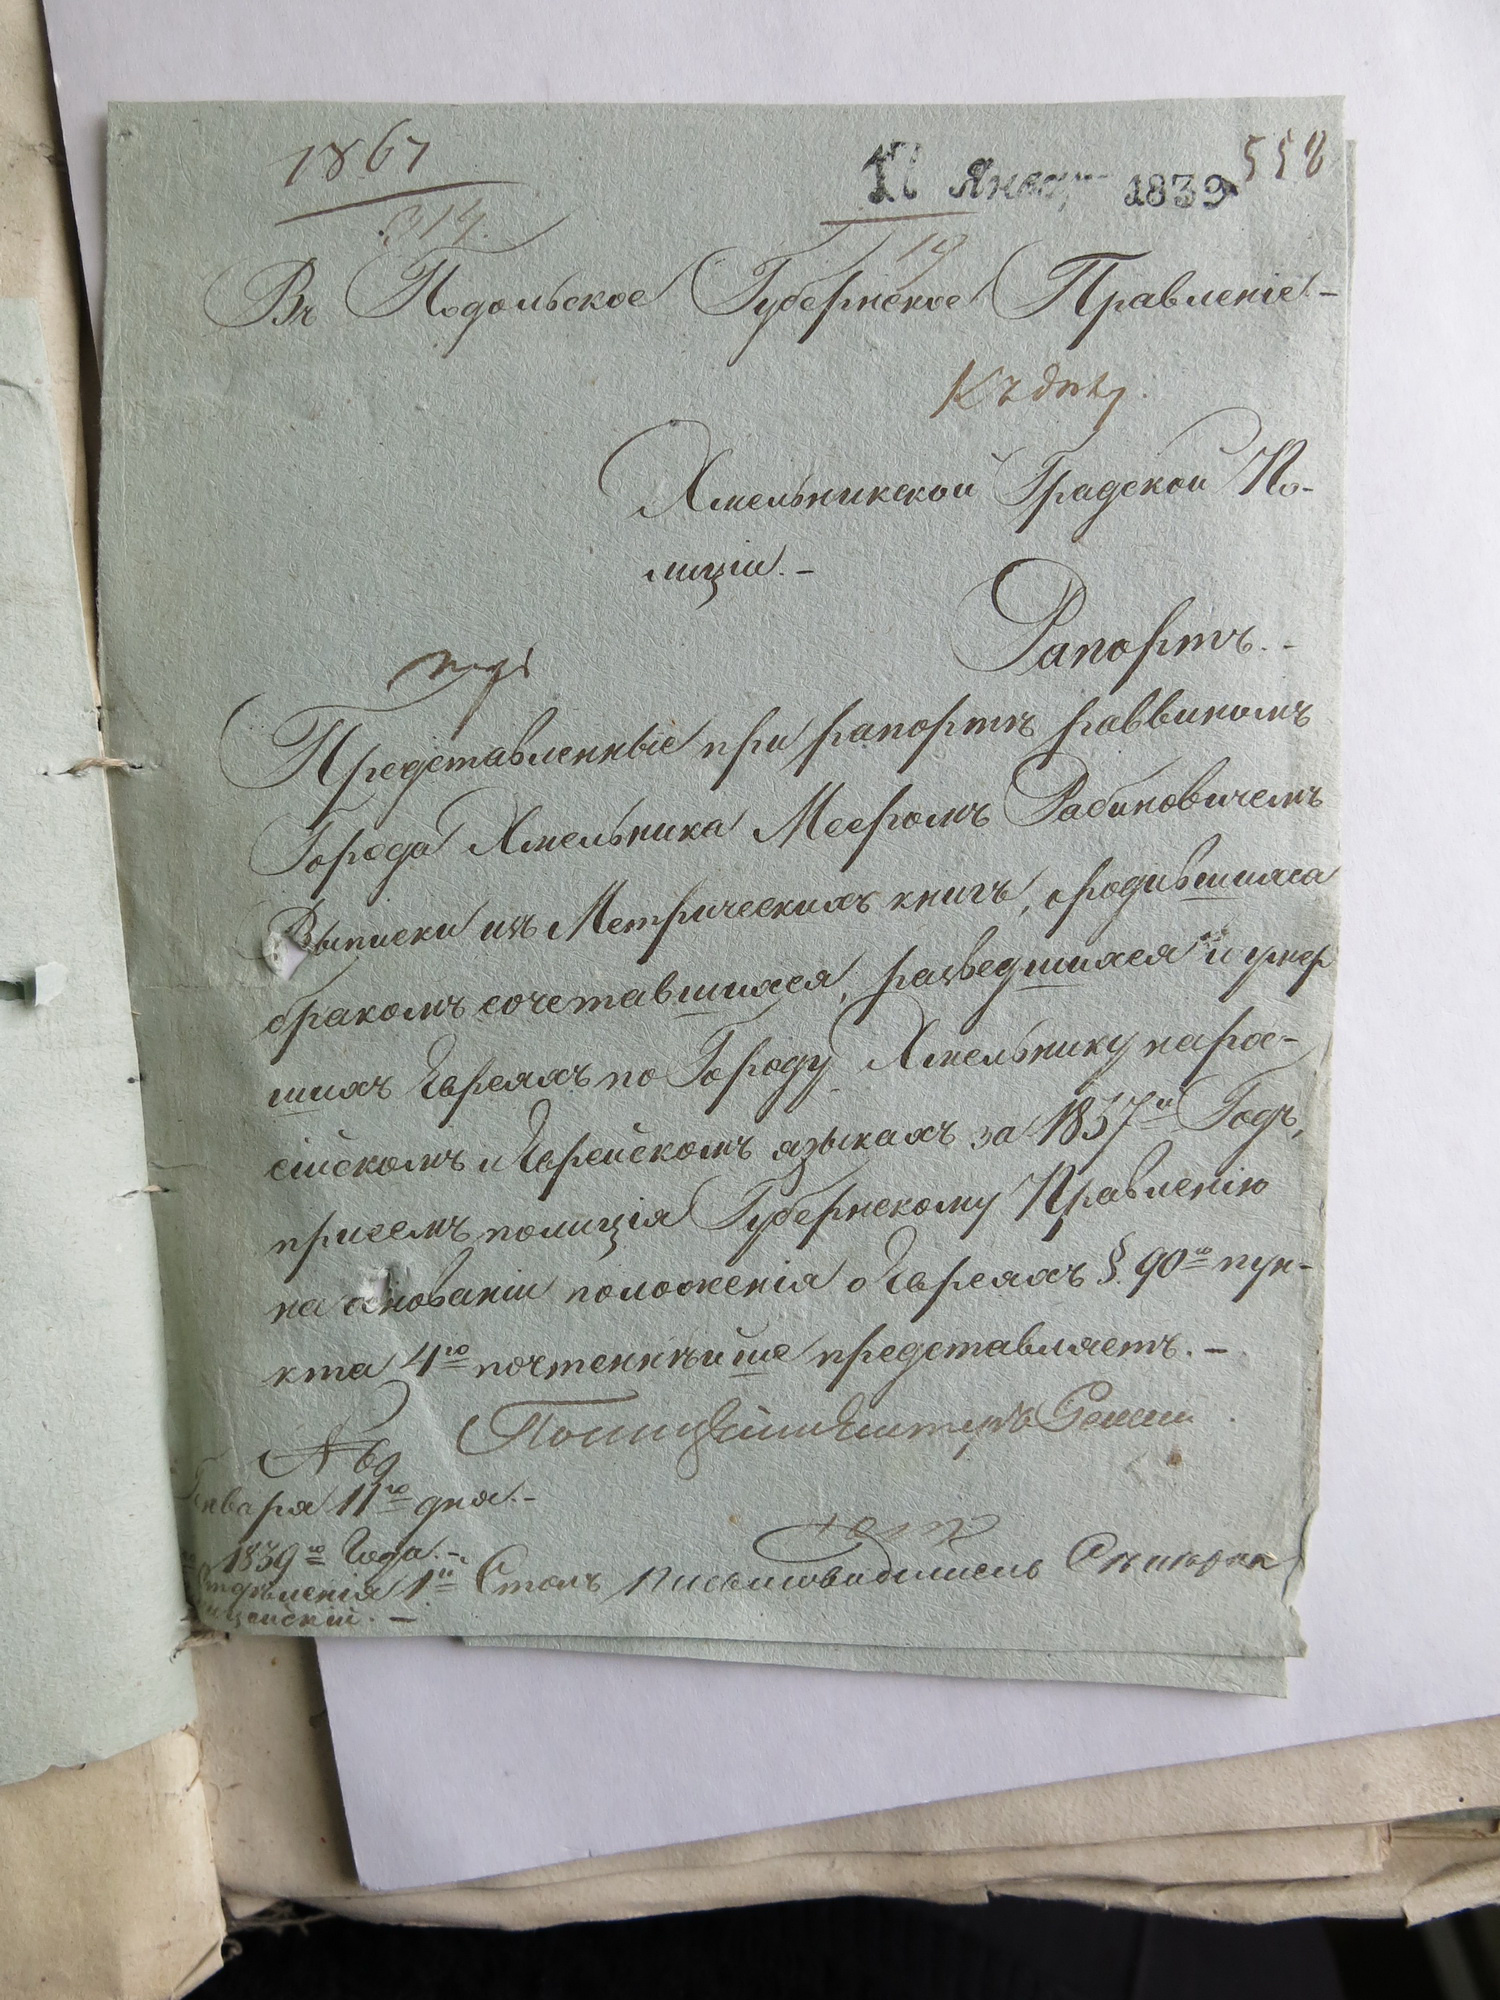 1867
314.
Январ 1839
558
19
Въ Подольское Губернское Правленіе.-
Къ дѣлу.
Хмельникской Градской По-
лиціи.-
Рапортъ.-
Представленные при рапортѣ раввиномъ
Города Хмельника Мееромъ Рабиновичемъ
Выписки изъ Метрическихъ книгъ, о родившихся
бракомъ сочетавшихся, разведшихся и умер
шихъ Евреяхъ по Городу Хмельнику на рос-
сійскомъ и Еврейскомъ языкахъ за 1837й Годъ,
присемъ полиція Губернскому Правленію
на основаніи положенія о Евреяхъ §. 90го пун-
кта 4го почтеннѣйше представляетъ.-
Полицеймейстеръ
№ 69
Января 11го дня.-
1839го Года.-
Отдѣленія 1й Столъ
Письмоводитель